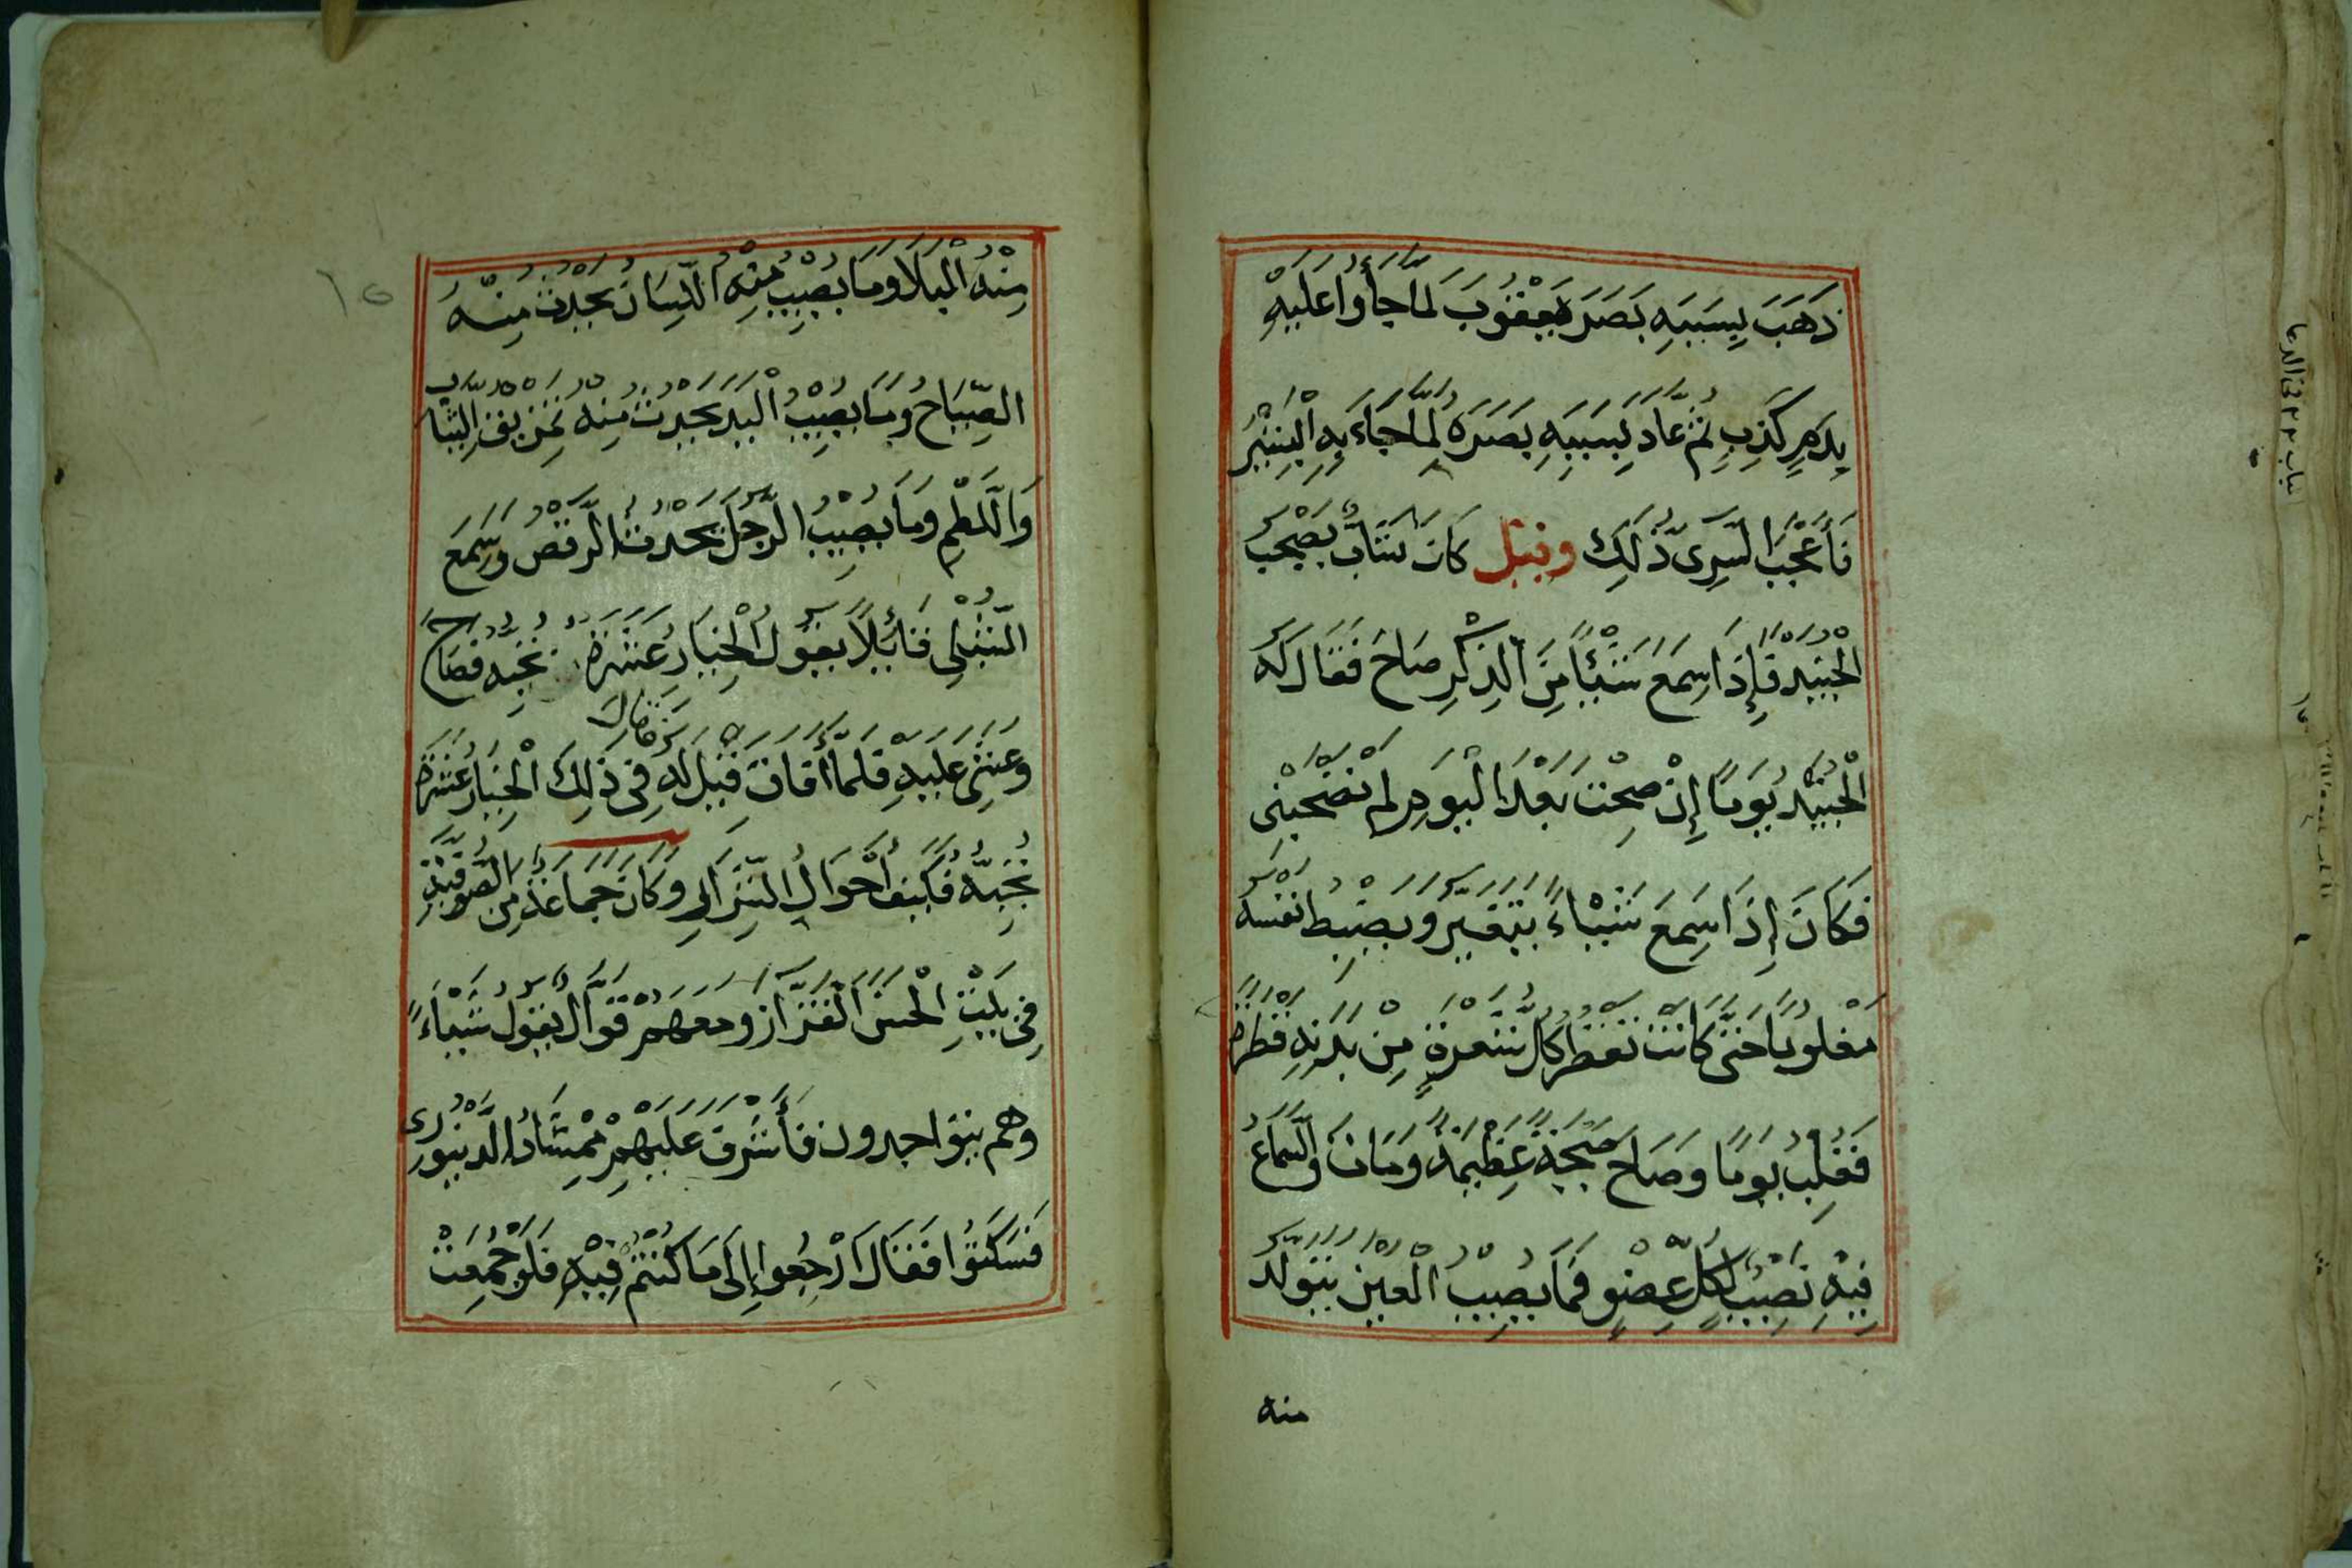 ذَهَبَ بِسَبَبِهِ بَصَرَ يَعْقُوبَ لَمَّا جَأُوا عَلَيْهِ
بِدَمٍ كَذِبٍ ثُمَّ عَادَ بِسَبَبِهِ بَصَرَهُ لَمَّا جَاءَ بِهِ الْبَشِيْرُ
فَأَعْجَبَ السَّرِى ذَٰلِكَ وقيل كَانَ شَابٌّ يَصْحَبُ
الْجُنَيْد فَإِذَا سَمِعَ شَيْئًا مِّنَ الذِّكْرِ صَاحَ فَقَالَ لَهُ
الْجُنَيْد يَوْمًا إِنْ صِحْتَ بَعْدَ الْيَوْمِ لَمْ تَصْحَبْنِى
فَكَانَ إِذَا سَمِعَ شَيْئاءً يَتَغَيَّرُ وَيَضْبِطُ نَفْسَهُ
مَغْلُوبًا حَتّى كَانَتْ تَقْطُرُ كُلُّ شَعْرَةٍ مِنْ بَدَنِهِ قَطْرَةً
فَغُلِبَ يَوْمًا وَصَاحَ صَيْحَةً عَظِيمَةً وَمَاتَ وَالسَّمَاعُ
فِيْهِ نَصِيْبٌ لِكُلِّ عِضْوٍ فَمَا يُصِيْبُ الْعَيْنَ يَتَوَلَّدُ
منه
١٥
مِنْهُ الْبُكَا وَمَا يُصِيْبُ مِنْهُ اللِّسَانُ يَحْدِثُ مِنْهُ
الصِّيَاحُ وَمَا يُصِيْبُ الْيَدَ يَحْدِثُ مِنه تَمْزِيْقُ الثِّيَابِ
وَالَّلطْمِ وَمَا يُصِيْبُ الرِّجْلَ يَحْدُثُ الرَّقْصُ وَسَمِعَ
الشِّبْلِى قَائِلًا يَقُولُ الْخِيَارُ عَشَرَةٌ بِحَبَّه فَصَاحَ
وَغُشِىَ عَلَيْهِ فَلَمَّا أَفَاقَ قِيْلَ لَهُ فِى ذَلِكَ فَقَالَ الْخِيَارُ عَشَرَةٌ
بِحَبَّه فَكَيْفَ أَحْوَالُ الشِّرَارِ وَكَانَ جَمَاعَةٌ مِنَ الصُّوفِيَّةِ
فِى بَيْتِ الْحَسَنِ الْقَزَّازِ وَمَعَهُمْ قَوَّالٌ يَقُولُ شَيْئاءً
وَهُم يتواجدون فَأَشْرَقَ عَلَيْهِمْ مِمْشَادُ الدَّيْنُورِى
فَسَكَتُوا فَقَالَ ارْجِعُوا إِلَى مَا كُنْتُمْ فِيْهِ فَلَوْ جُمِعَتْ